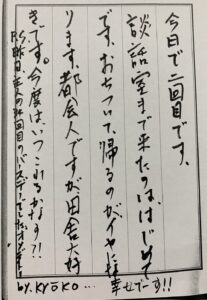 今日で二回目です。
談話室まで来たのは、はじめて
です。おちついて、帰るのがイヤに
ります。都会人ですが、田舎大好
きです。今度は、いつこれるかな?!
P.S.昨日、主人の回目のバースデーでした
幸せでーす!!
by. KYŌKO…